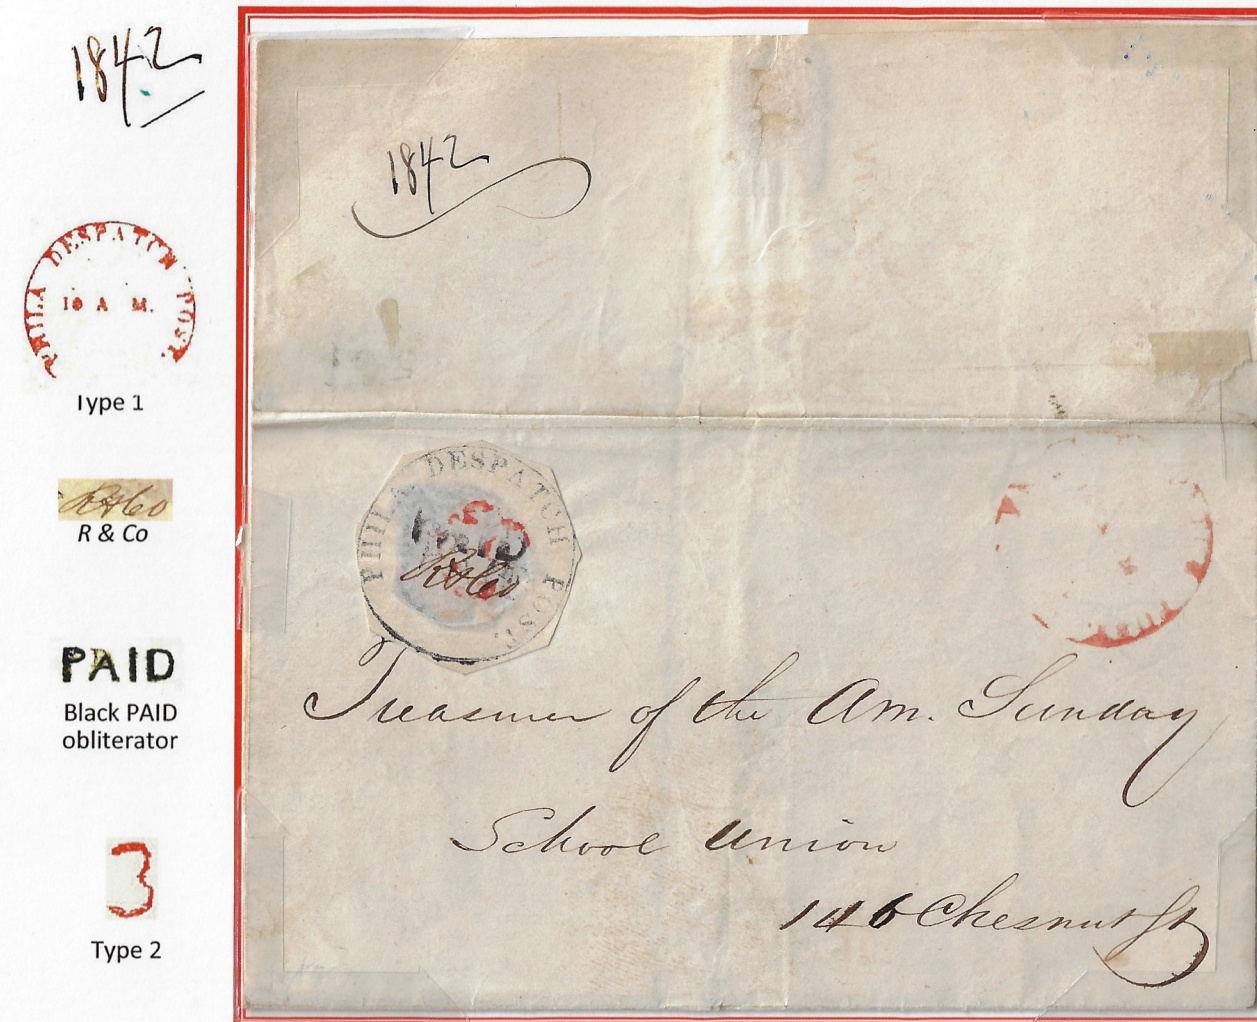 1842
PHILA DESPATCH POST.
10 A M.
Type 1
R & Co
R & Co
PAID
Black PAID
obliterator
3
Type 2
1842
PHILA DESPATCH POST.
PAID
R & Co
Treasurer of the Am. Sunday
School Union
146 Chesnut St